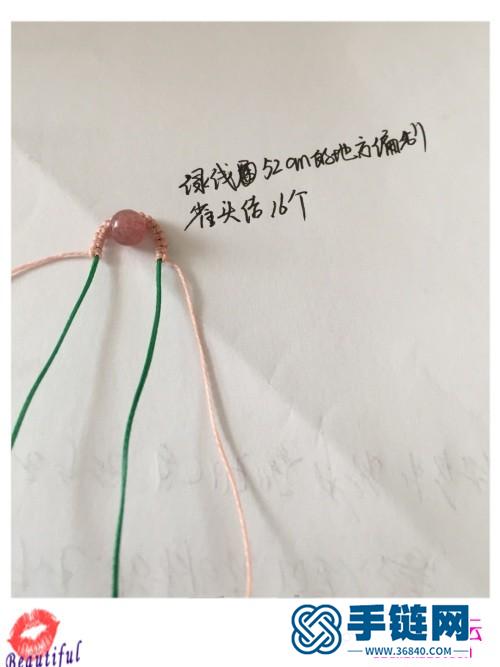 绿线留52cm的地方编制
雀头结16个
Beautiful
手链网
www.36840.com
坛